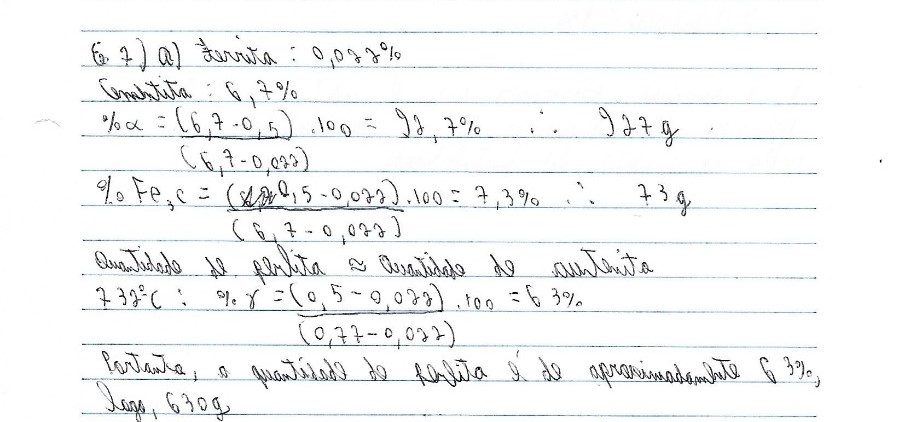 Ex 7) a) Ferrita : 0,022%
Cementita : 6,7%
%α = (6,7-0,5) .100 = 92,7% ∴ 927g
(6,7-0,022)
% Fe3C = (0,5-0,022) .100 = 7,3% ∴ 73g
(6,7-0,022)
Quantidade de perlita ≈ Quantidade de austenita
732°C : % γ = (0,5-0,022) .100 = 63%
(0,77-0,022)
Portanto, a quantidade de perlita é de aproximadamente 63%,
logo, 630g